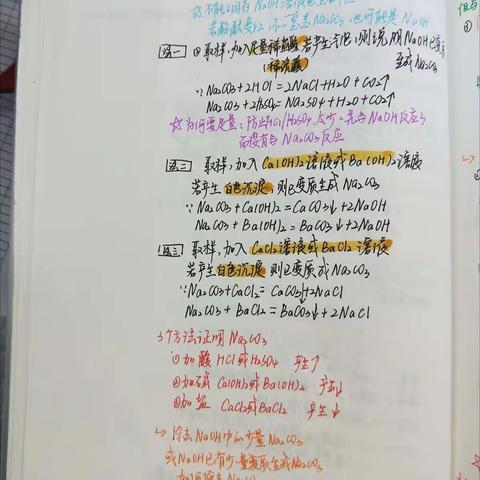 答: 不能, 因为 NaOH溶液也呈碱性
若酚酞变红, 不一定是Na₂CO₃, 也可能是NaOH
法一 ① 取样, 加入足量稀盐酸, 若产生气泡, 则说明NaOH已变质
(稀硫酸) 生成Na₂CO₃
∵ Na₂CO₃+2HCl=2NaCl+H₂O+CO₂↑
Na₂CO₃+H₂SO₄=Na₂SO₄+H₂O+CO₂↑
☆为何要足量: 防止HCl/H₂SO₄太少, 先与NaOH反应了
而没有与Na₂CO₃反应
法二 取样, 加入Ca(OH)₂溶液或Ba(OH)₂溶液
若产生白色沉淀, 则已变质生成Na₂CO₃
∵ Na₂CO₃+Ca(OH)₂=CaCO₃↓+2NaOH
Na₂CO₃+Ba(OH)₂=BaCO₃↓+2NaOH
法三 取样, 加入CaCl₂溶液或BaCl₂溶液
若产生白色沉淀 则已变质成Na₂CO₃
∵ Na₂CO₃+CaCl₂=CaCO₃↓+2NaCl
Na₂CO₃+BaCl₂=BaCO₃↓+2NaCl
3个方法证明Na₂CO₃
①加酸 HCl或H₂SO₄ 产生↑
②加碱 Ca(OH)₂或Ba(OH)₂ 产生↓
③加盐 CaCl₂或BaCl₂ 产生↓
↳ 除去NaOH中的少量Na₂CO₃
或NaOH已有少量变质生成Na₂CO₃
如何除去Na₂CO₃